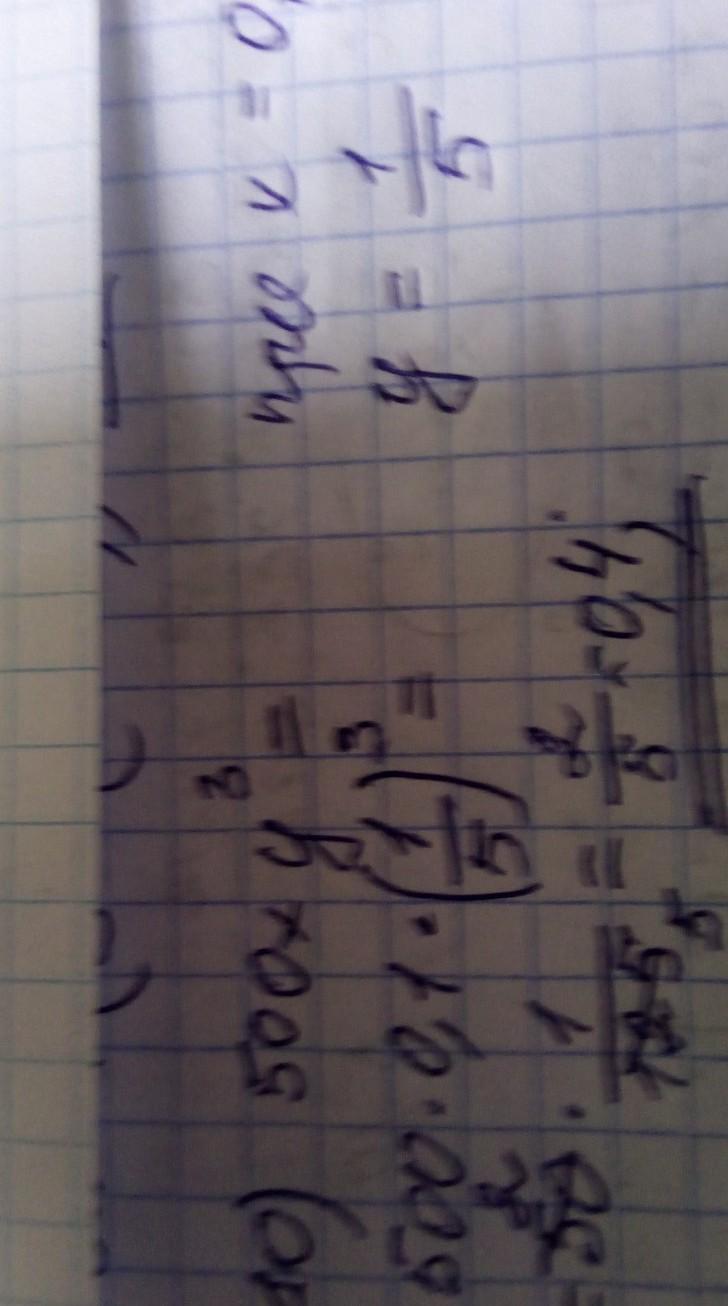 10) 500xy³ = при x = 0,
500 · 0,1 · (1/5)³ = y = 1/5
= 50 · 1/125 = 2/5 = 0,4